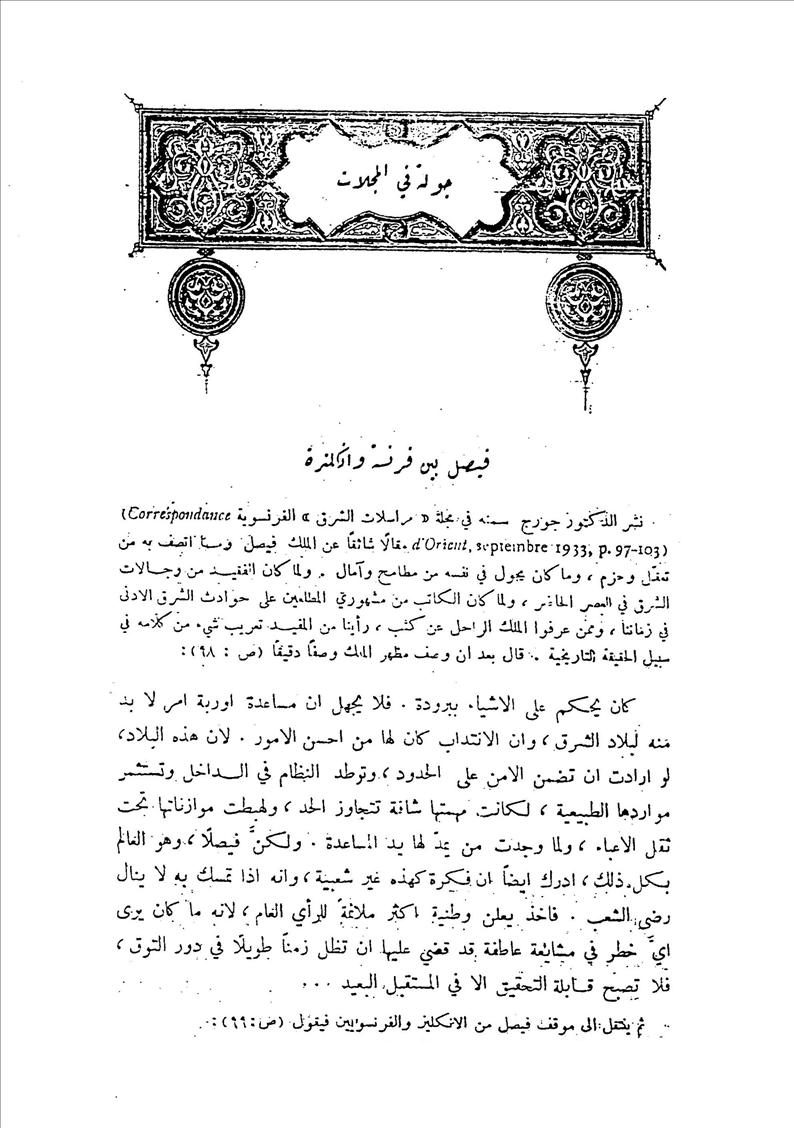 جولة في المجلات
فيصل بين فرنسة وانكلترة
نشر الدكتور جورج سمنه في مجلة « مراسلات الشرق » الفرنسوية Correspondance)
d'Orient, septembre 1933, p. 97-103) مقالًا شائقًا عن الملك فيصل وما اتصف به من
تعقل وحزم ، وما كان يجول في نفسه من مطامح وآمال . ولما كان الفقيد من رجالات
الشرق في العصر الحاضر ، ولما كان الكاتب من مشهوري المطلعين على حوادث الشرق الادنى
في زماننا ، وممن عرفوا الملك الراحل عن كثب ، رأينا من المفيد تعريب شيء من كلامه في
سبيل الحقيقة التاريخية . قال بعد ان وصف مظهر الملك وصفًا دقيقًا (ص : ٩٨) :
كان يحكم على الاشياء ببرودة . فلا يجهل ان مساعدة اوربة امر لا بد
منه لبلاد الشرق ، وان الانتداب كان لها من احسن الامور . لان هذه البلاد،
لو ارادت ان تضمن الامن على الحدود ، وتوطد النظام في الداخل وتستثمر
مواردها الطبيعية ، لكانت مهمتها شاقة تتجاوز الحد ، ولهبطت موازناتها تحت
ثقل الاعباء ، ولما وجدت من يمدّ لها يد المساعدة . ولكنَّ فيصلًا ، وهو العالم
بكل ذلك ، ادرك ايضاً ان فكرة كهذه غير شعبية ، وانه اذا تمسك به لا ينال
رضى الشعب . فاخذ يعلن وطنية اكثر ملائمةً للرأي العام ، لانه ما كان يرى
ايَّ خطر في مشايعة عاطفة قد قضي عليها ان تظل زمناً طويلًا في دور التوق ،
فلا تصبح قابلة التحقيق الا في المستقبل البعيد ...
ثم ينتقل الى موقف فيصل من الانكليز والفرنسويين فيقول (ص : ٩٩) :